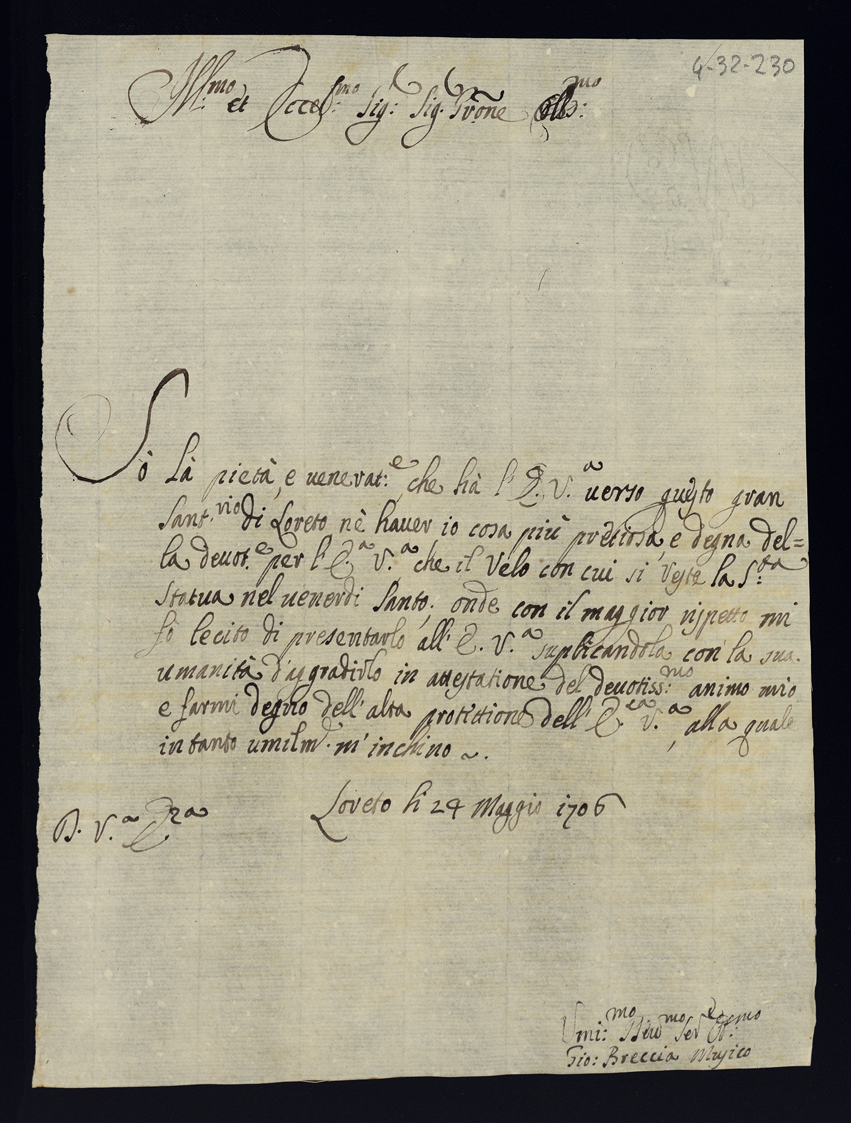 4-32-230
Ill:mo et Eccel:mo Sig: Sig. Prone Coll:mo
Sò là pietà, e venerat:e che hà l'E. V.a verso questo gran
Sant.rio di Loreto nè haver io cosa più pretiosa, e degna del=
la devot.e per l'E.a V.a che il Velo con cui si veste la S:ta
Statua nel venerdi Santo; onde con il maggior rispetto mi
fò lecito di presentarlo all'E. V.a suplicandola con la sua
umanità d'aggradirlo in attestatione del devotiss:mo animo mio
e farmi degno dell'alta protettione dell'E.za V.a, alla quale
in tanto umilm.e m'inchino ~.
D. V.a E.za
Loreto li 24 Maggio 1706
Umi:mo Ser
Gio: Breccia Musico